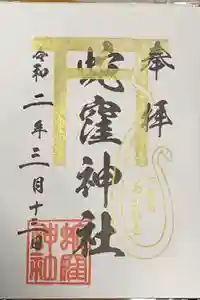 奉拝
蛇窪神社
令和二年三月十二日
蛇窪神社